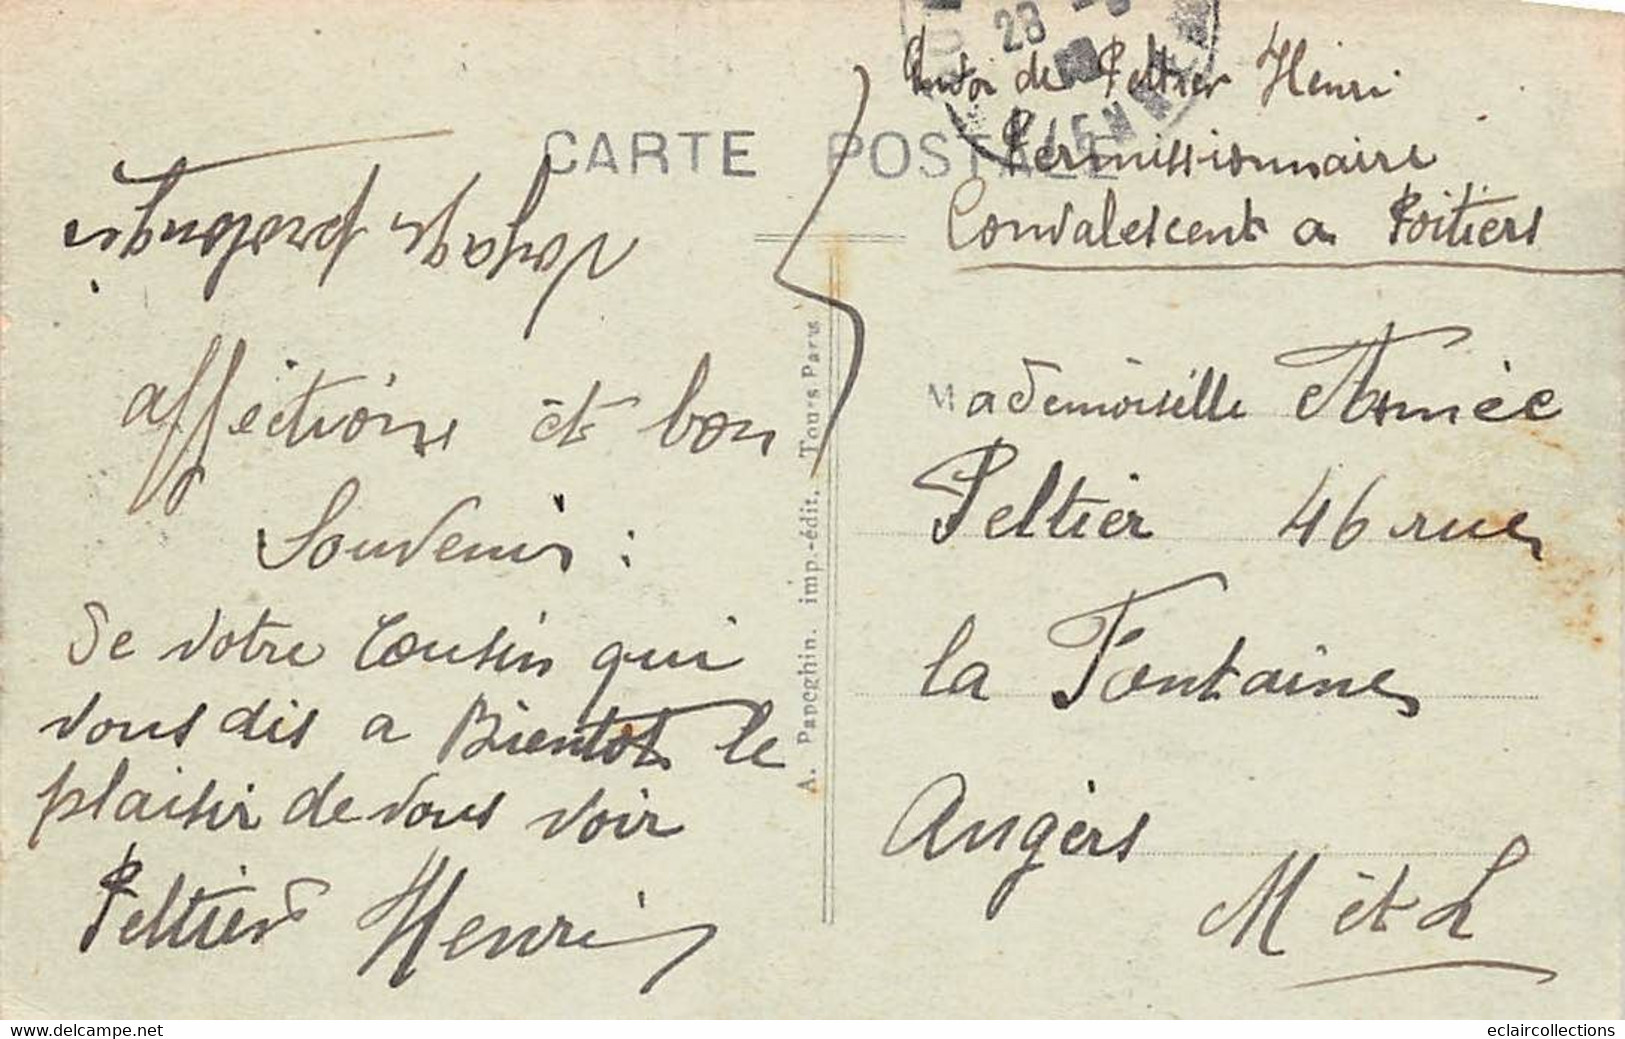 CARTE POSTALE
28
Envoi de Peltier Henri
Permissionnaire
Convalescent a Poitiers
voyage prolongé
affections et bon
Souvenir :
De votre Cousin qui
vous dis a Bientot le
plaisir de vous voir
Peltier Henri
A. Papeghin. imp.-édit. Tours Paris
Mademoiselle Aimée
Peltier 46 rue
la Fontaine
Angers
M et L
www.delcampe.net
eclaircollections